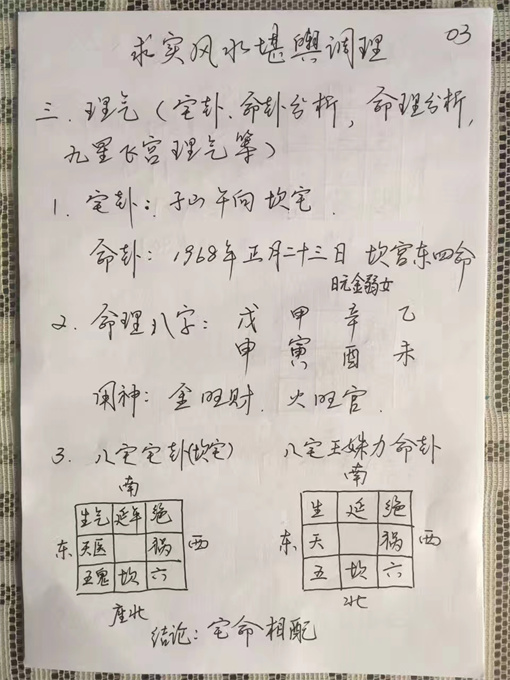 03
求实风水堪舆调理
三.理气(宅卦.命卦分析,命理分析,
九星飞宫理气等)
1.宅卦:子山午向坎宅.
命卦:1968年正月二十三日 坎宫东四命
日元金弱女
2.命理八字:戊 甲 辛 乙
申 寅 酉 未
用神:金旺财.火旺官.
3.八宅宅卦(坎宅) 八宅玉姝力命卦
南 南
生气 延年 绝 生 延 绝
东 天医 祸 西 东 天 祸 西
五鬼 坎 六 五 坎 六
座北 北
结论:宅命相配